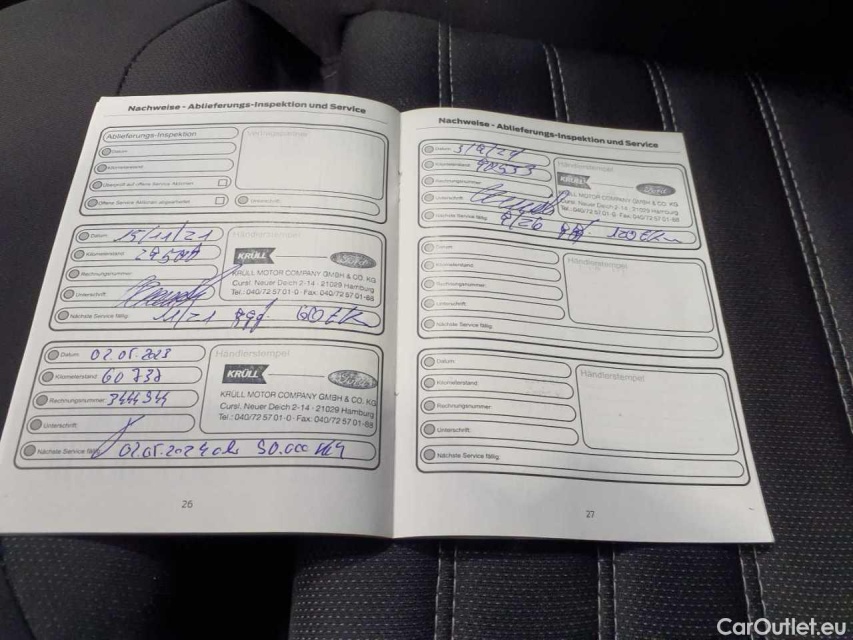 Nachweise - Ablieferungs-Inspektion und Service
Ablieferungs-Inspektion
Datum:
Kilometerstand:
Überprüft auf offene Service Aktionen
Offene Service Aktionen abgearbeitet
Unterschrift:
Datum: 15/11/21
Kilometerstand:
Rechnungsnummer:
Unterschrift:
Nächste Service fällig: 60 TKm
Händlerstempel
KRÜLL
Ford
KRÜLL MOTOR COMPANY GMBH & CO. KG
Cursl. Neuer Deich 2-14 · 21029 Hamburg
Tel.: 040/72 57 01-0 · Fax: 040/72 57 01-68
Datum: 02.05.2023
Kilometerstand: 60 738
Rechnungsnummer: 3444344
Unterschrift:
Nächste Service fällig: 02.05.2024
Händlerstempel
KRÜLL
Ford
KRÜLL MOTOR COMPANY GMBH & CO. KG
Cursl. Neuer Deich 2-14 · 21029 Hamburg
Tel.: 040/72 57 01-0 · Fax: 040/72 57 01-68
26
Nachweise - Ablieferungs-Inspektion und Service
Datum:
Kilometerstand:
Rechnungsnummer:
Unterschrift:
Nächste Service fällig:
Händlerstempel
KRÜLL
Ford
KRÜLL MOTOR COMPANY GMBH & CO. KG
Cursl. Neuer Deich 2-14 · 21029 Hamburg
Tel.: 040/72 57 01-0 · Fax: 040/72 57 01-68
Datum:
Kilometerstand:
Rechnungsnummer:
Unterschrift:
Nächste Service fällig:
Händlerstempel
Datum:
Kilometerstand:
Rechnungsnummer:
Unterschrift:
Nächste Service fällig:
Händlerstempel
27
CarOutlet.eu